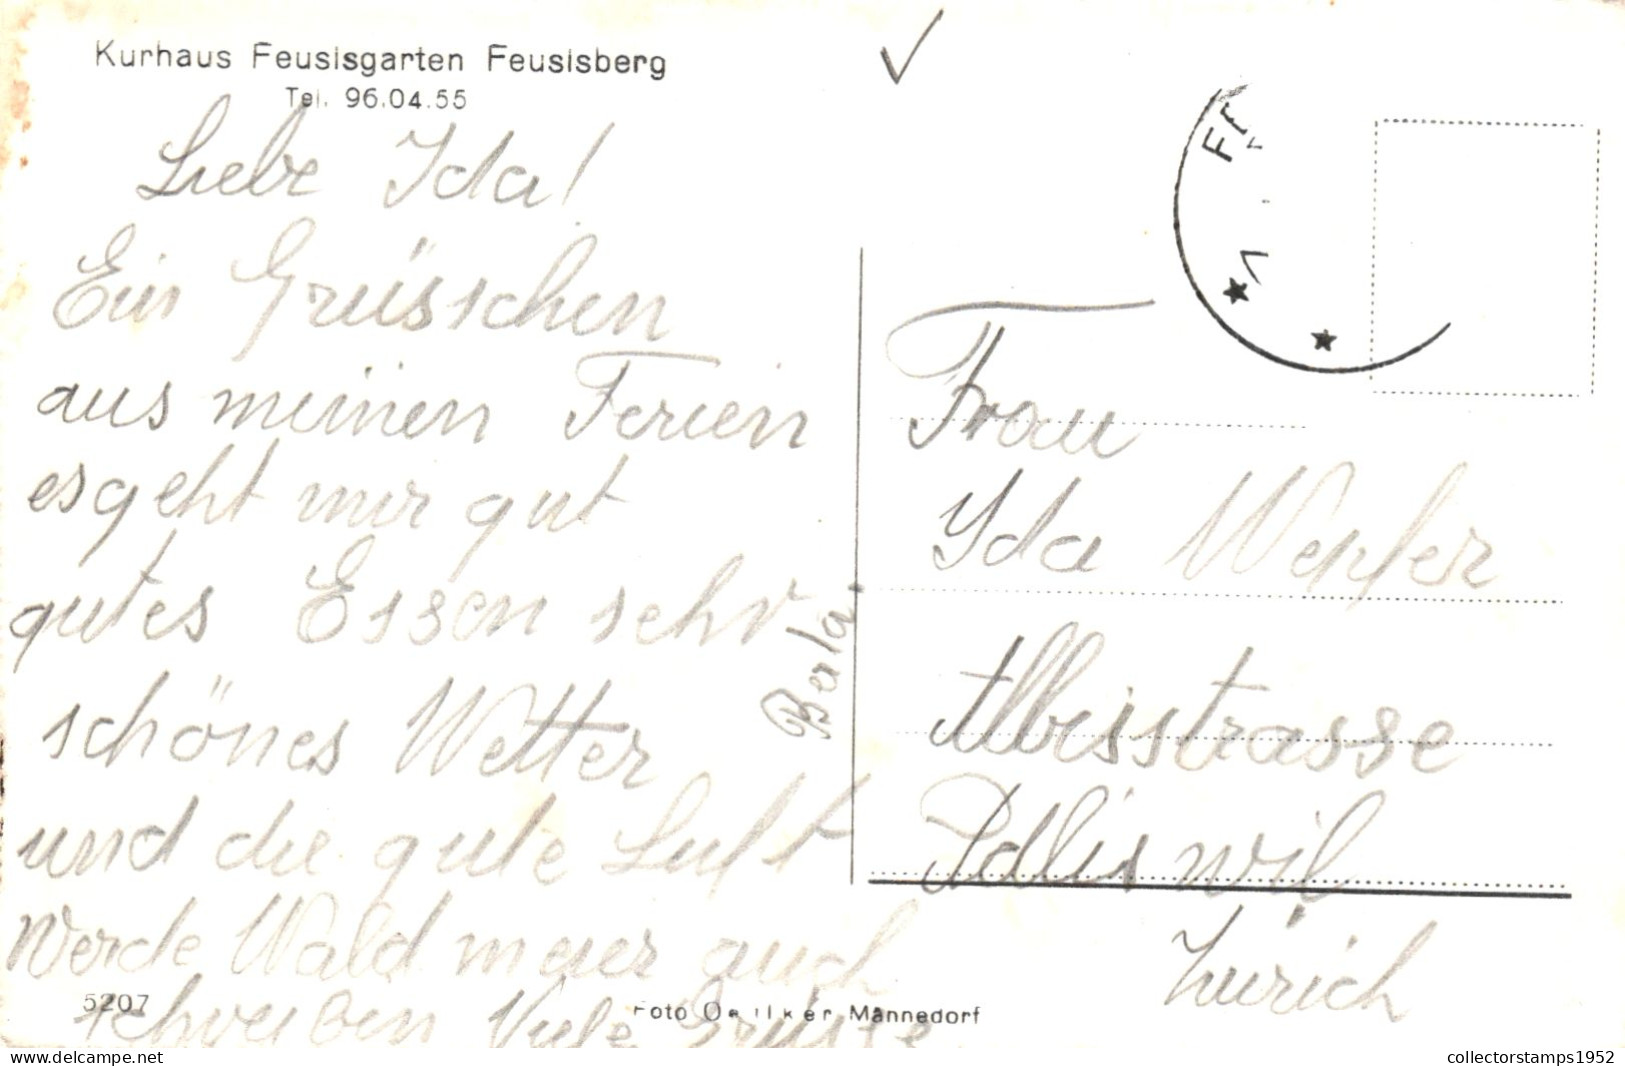 Kurhaus Feusisgarten Feusisberg
Tel. 96.04.55
Liebe Ida!
Ein Grüsschen
aus meinen Ferien
es geht mir gut
gutes Essen sehr
schönes Wetter
und die gute Luft
Werde Waldmeier auch
schreiben Viele Grüsse
Berta
5207
Foto Oetiker Männedorf
Frau
Ida Wepfer
Albisstrasse
Adliswil
Zürich
collectorstamps1952